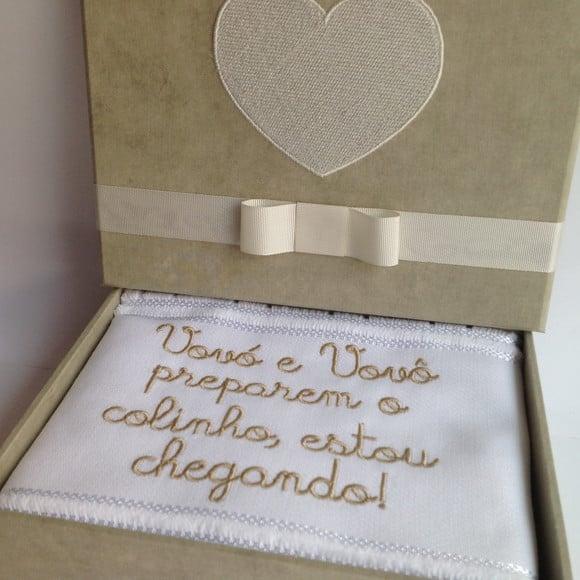 Vovó e Vovô
preparem o
colinho, estou
chegando!